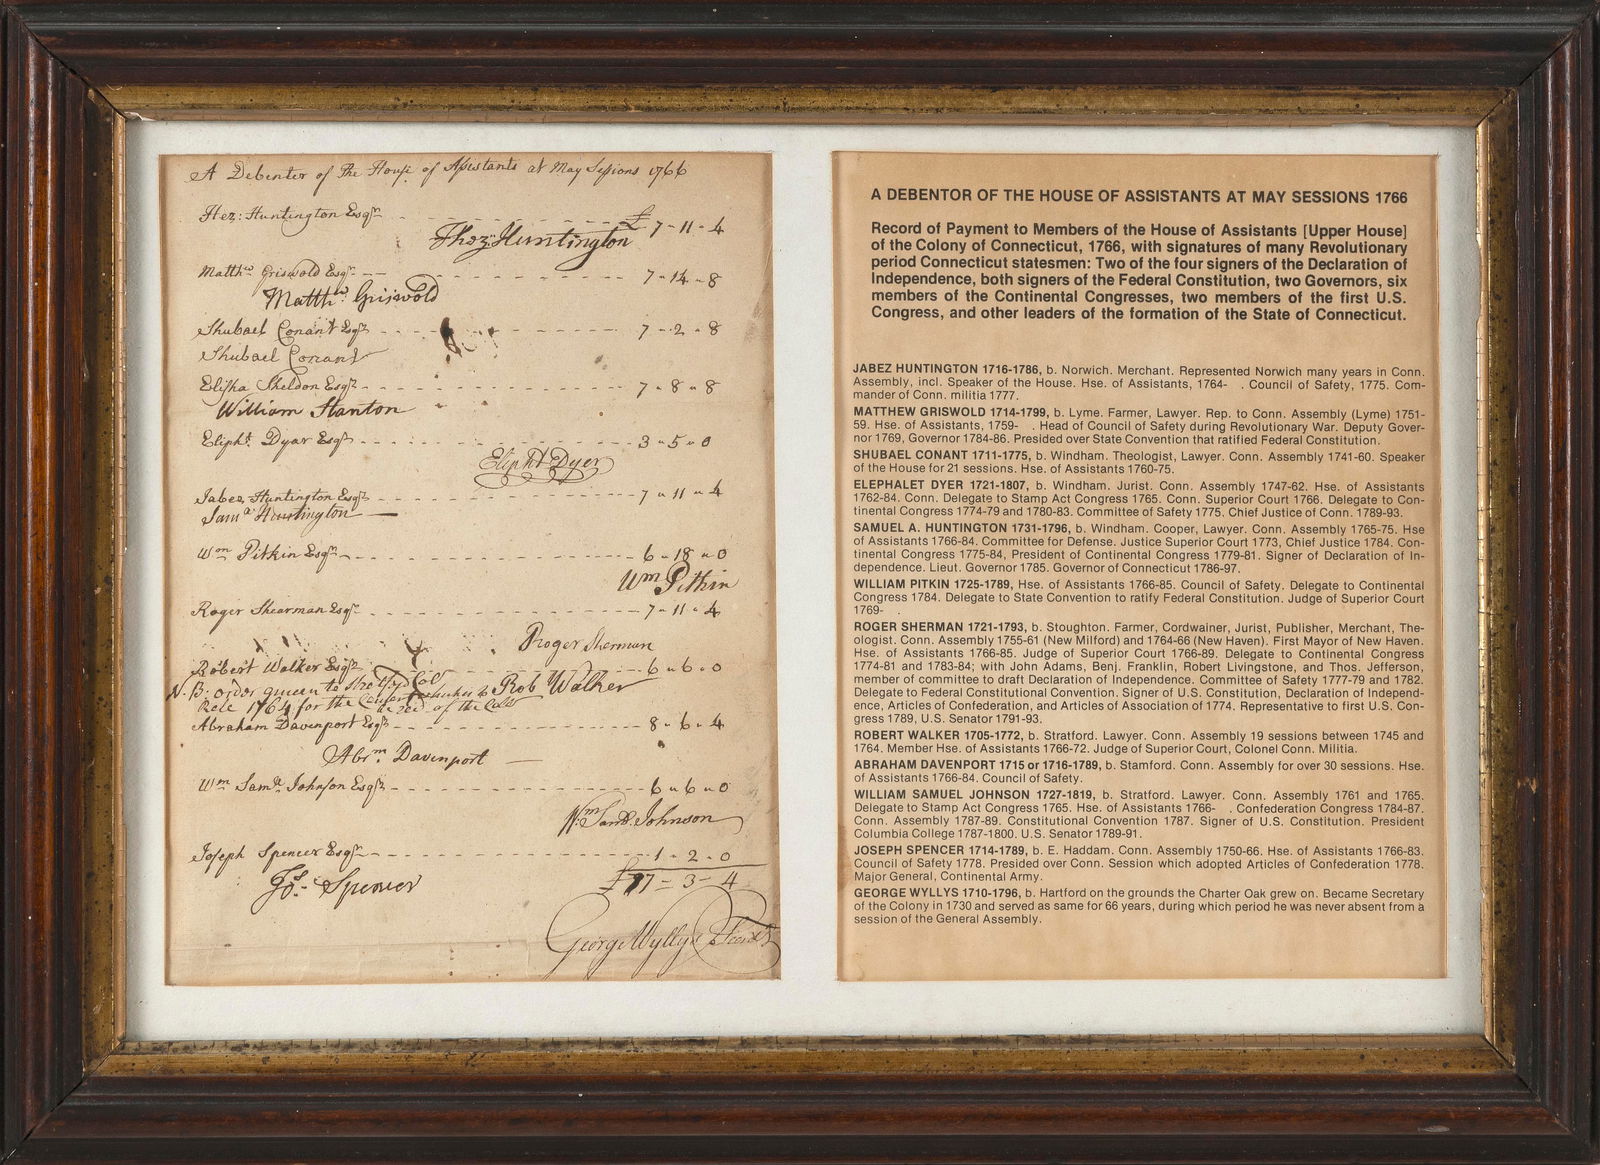 A Debenter of the House of Assistants at May Sessions 1766
Hez: Huntington Esqr. - - - - - - - £ 7 - 11 - 4
Huntington
Matthw Griswold Esqr. - - - - - - - 7 - 14 - 8
Matthw Griswold
Shubael Conant Esqr. - - - - - - - 7 - 2 - 8
Shubael Conant
Elisha Sheldon Esqr. - - - - - - - 7 - 8 - 8
William Stanton
Elipht. Dyar Esqr. - - - - - - - 3 - 5 - 0
Eliphlt Dyer
Jabez Huntington Esqr. - - - - - - - 7 - 11 - 4
Samll Huntington
Wm Pitkin Esqr. - - - - - - - 6 - 18 - 0
Wm Pitkin
Roger Shearman Esqr. - - - - - - - 7 - 11 - 4
Roger Sherman
Robert Walker Esqr. - - - - - - - 6 - 6 - 0
N. B. order given to Rob Walker
1764 for the of the
Abraham Davenport Esqr. - - - - - - - 8 - 6 - 4
Abrm. Davenport
Wm Samll Johnson Esqr. - - - - - - - 6 - 6 - 0
Wm Saml. Johnson
Joseph Spencer Esqr. - - - - - - - 1 - 2 - 0
£77 = 3 - 4
Jos. Spencer
George Wyllys Secret
A DEBENTOR OF THE HOUSE OF ASSISTANTS AT MAY SESSIONS 1766
Record of Payment to Members of the House of Assistants [Upper House]
of the Colony of Connecticut, 1766, with signatures of many Revolutionary
period Connecticut statesmen: Two of the four signers of the Declaration of
Independence, both signers of the Federal Constitution, two Governors, six
members of the Continental Congresses, two members of the first U.S.
Congress, and other leaders of the formation of the State of Connecticut.
JABEZ HUNTINGTON 1716-1786, b. Norwich. Merchant. Represented Norwich many years in Conn.
Assembly, incl. Speaker of the House. Hse. of Assistants, 1764- . Council of Safety, 1775. Com-
mander of Conn. militia 1777.
MATTHEW GRISWOLD 1714-1799, b. Lyme. Farmer, Lawyer. Rep. to Conn. Assembly (Lyme) 1751-
59. Hse. of Assistants, 1759- . Head of Council of Safety during Revolutionary War. Deputy Gover-
nor 1769, Governor 1784-86. Presided over State Convention that ratified Federal Constitution.
SHUBAEL CONANT 1711-1775, b. Windham. Theologist, Lawyer. Conn. Assembly 1741-60. Speaker
of the House for 21 sessions. Hse. of Assistants 1760-75.
ELEPHALET DYER 1721-1807, b. Windham. Jurist. Conn. Assembly 1747-62. Hse. of Assistants
1762-84. Conn. Delegate to Stamp Act Congress 1765. Conn. Superior Court 1766. Delegate to Con-
tinental Congress 1774-79 and 1780-83. Committee of Safety 1775. Chief Justice of Conn. 1789-93.
SAMUEL A. HUNTINGTON 1731-1796, b. Windham. Cooper, Lawyer. Conn. Assembly 1765-75. Hse
of Assistants 1766-84. Committee for Defense. Justice Superior Court 1773, Chief Justice 1784. Con-
tinental Congress 1775-84, President of Continental Congress 1779-81. Signer of Declaration of In-
dependence. Lieut. Governor 1785. Governor of Connecticut 1786-97.
WILLIAM PITKIN 1725-1789, Hse. of Assistants 1766-85. Council of Safety. Delegate to Continental
Congress 1784. Delegate to State Convention to ratify Federal Constitution. Judge of Superior Court
1769- .
ROGER SHERMAN 1721-1793, b. Stoughton. Farmer, Cordwainer, Jurist, Publisher, Merchant, The-
ologist. Conn. Assembly 1755-61 (New Milford) and 1764-66 (New Haven). First Mayor of New Haven.
Hse. of Assistants 1766-85. Judge of Superior Court 1766-89. Delegate to Continental Congress
1774-81 and 1783-84; with John Adams, Benj. Franklin, Robert Livingstone, and Thos. Jefferson,
member of committee to draft Declaration of Independence. Committee of Safety 1777-79 and 1782.
Delegate to Federal Constitutional Convention. Signer of U.S. Constitution, Declaration of Independ-
ence, Articles of Confederation, and Articles of Association of 1774. Representative to first U.S. Con-
gress 1789, U.S. Senator 1791-93.
ROBERT WALKER 1705-1772, b. Stratford. Lawyer. Conn. Assembly 19 sessions between 1745 and
1764. Member Hse. of Assistants 1766-72. Judge of Superior Court, Colonel Conn. Militia.
ABRAHAM DAVENPORT 1715 or 1716-1789, b. Stamford. Conn. Assembly for over 30 sessions. Hse.
of Assistants 1766-84. Council of Safety.
WILLIAM SAMUEL JOHNSON 1727-1819, b. Stratford. Lawyer. Conn. Assembly 1761 and 1765.
Delegate to Stamp Act Congress 1765. Hse. of Assistants 1766- . Confederation Congress 1784-87.
Conn. Assembly 1787-89. Constitutional Convention 1787. Signer of U.S. Constitution. President
Columbia College 1787-1800. U.S. Senator 1789-91.
JOSEPH SPENCER 1714-1789, b. E. Haddam. Conn. Assembly 1750-66. Hse. of Assistants 1766-83.
Council of Safety 1778. Presided over Conn. Session which adopted Articles of Confederation 1778.
Major General, Continental Army.
GEORGE WYLLYS 1710-1796, b. Hartford on the grounds the Charter Oak grew on. Became Secretary
of the Colony in 1730 and served as same for 66 years, during which period he was never absent from a
session of the General Assembly.